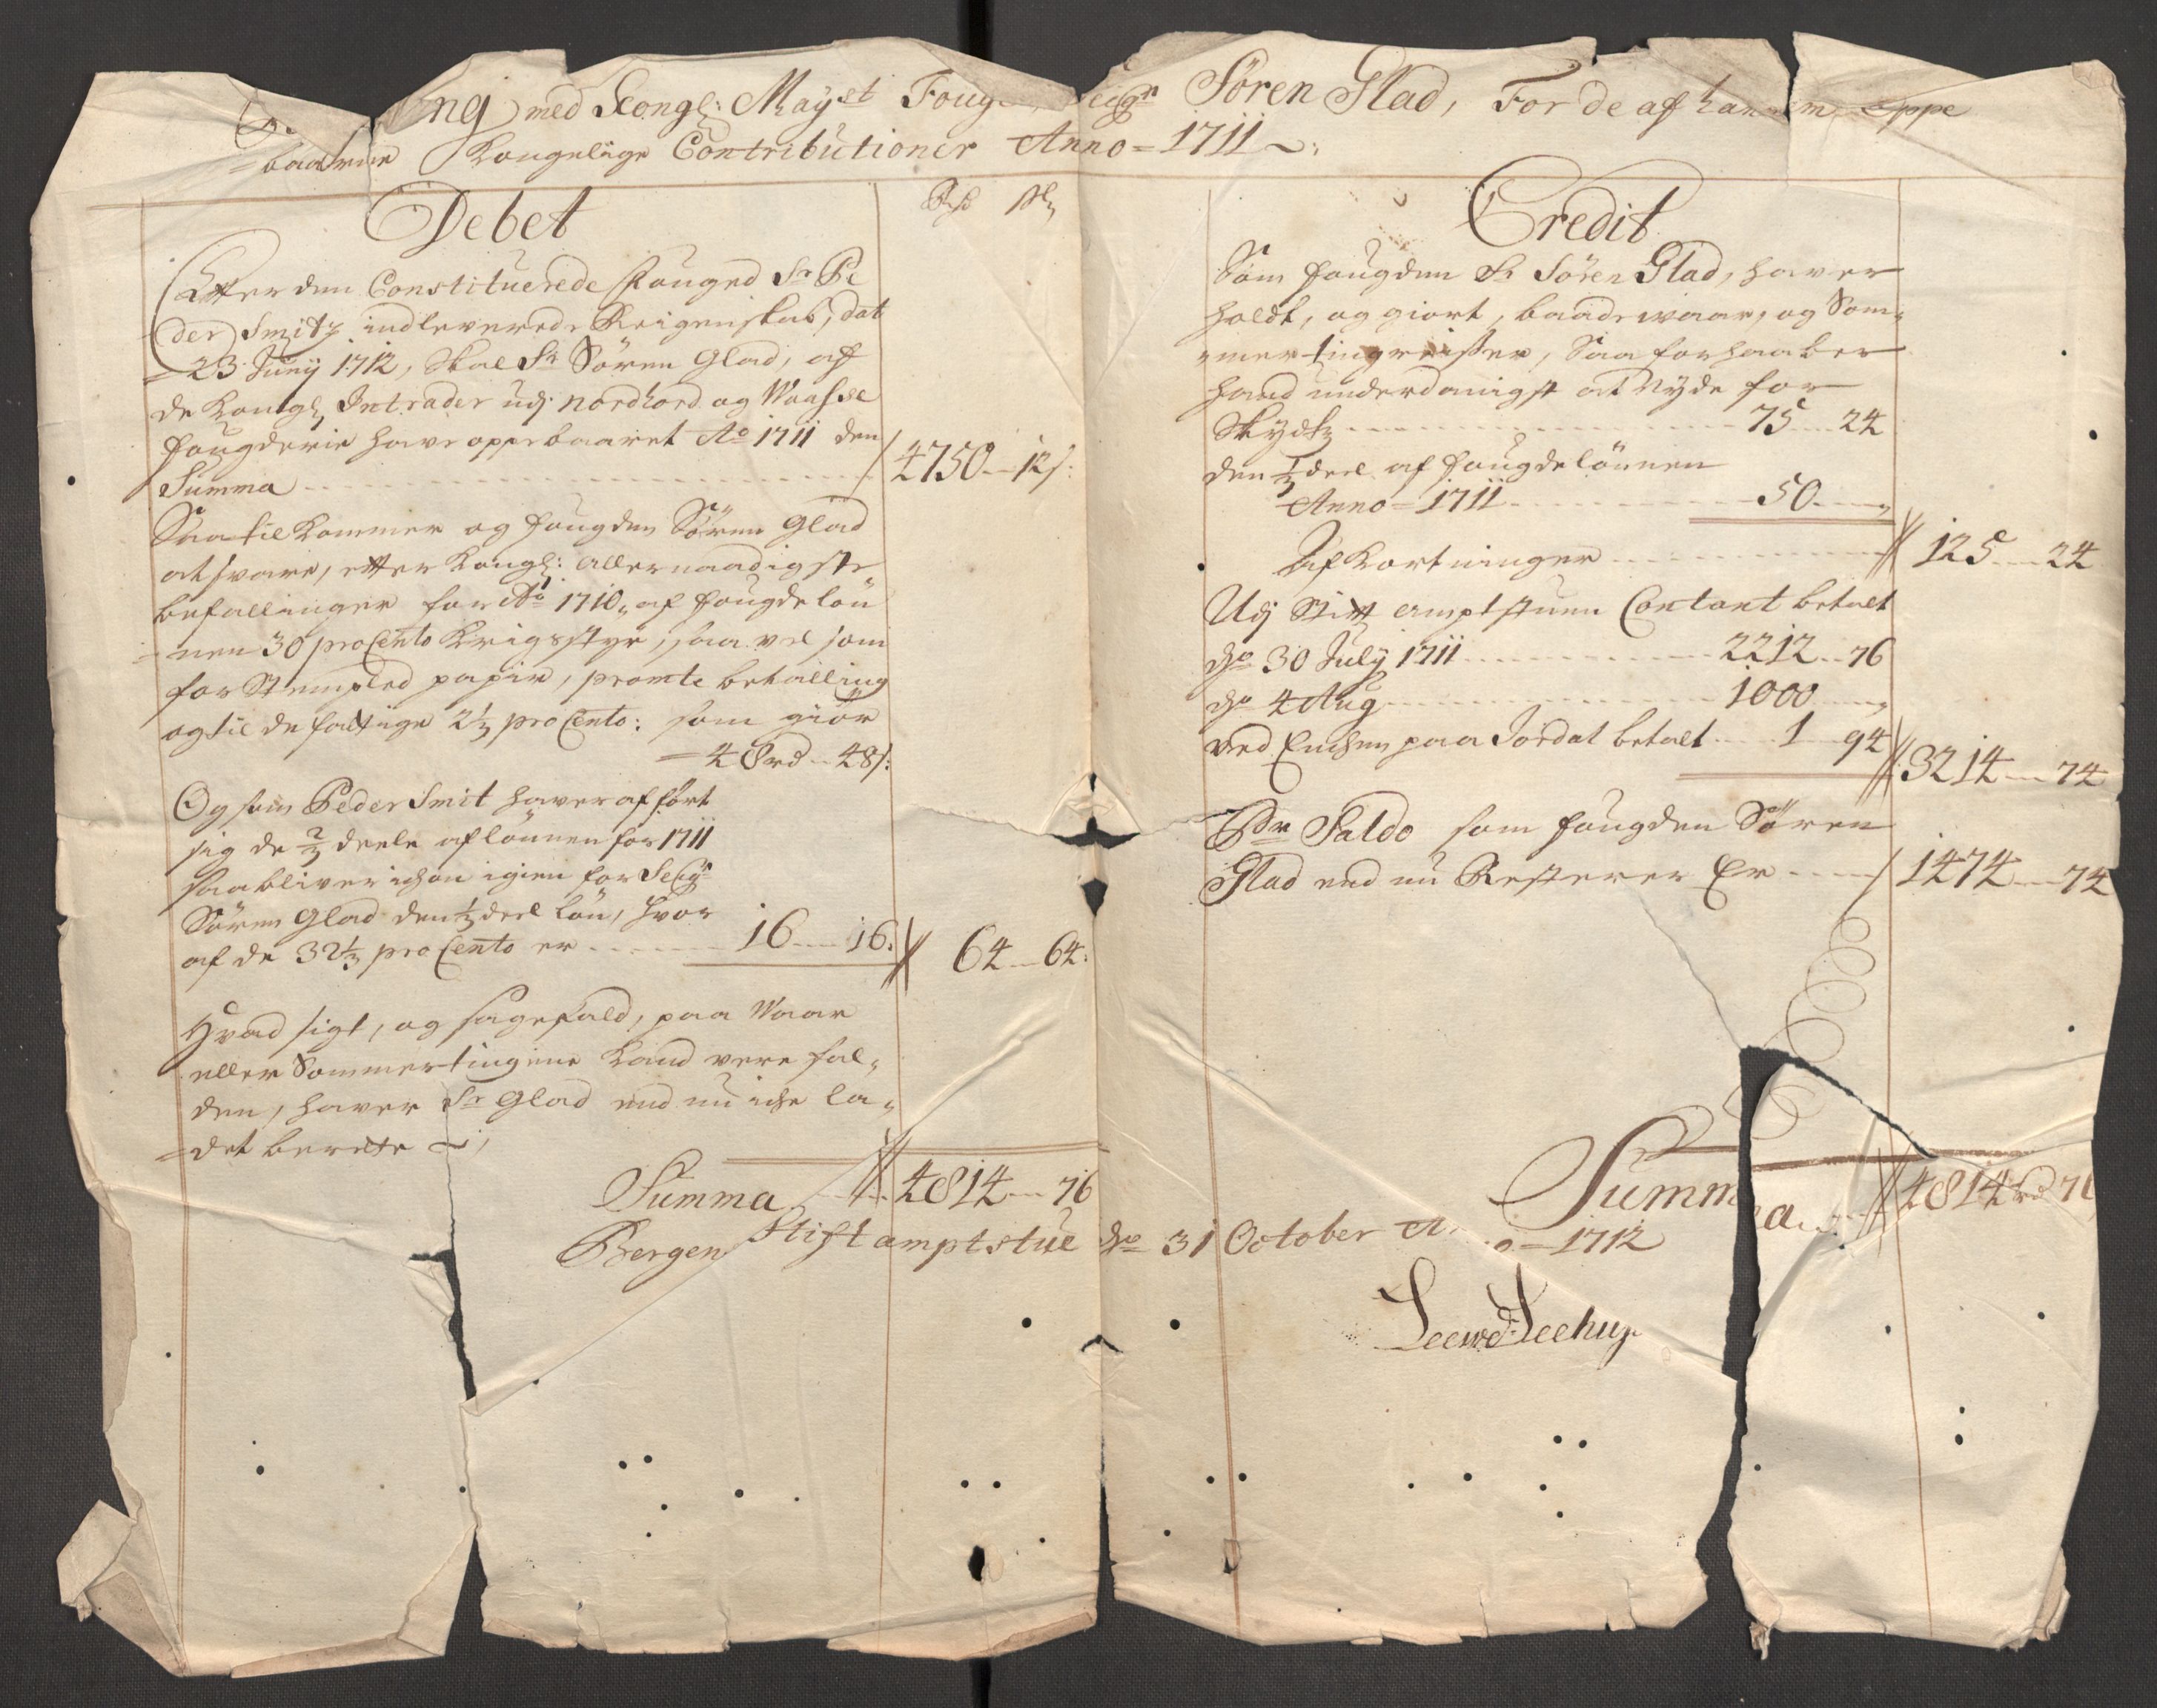 med Kongl: Mayst Søren Glad, For de af hannem oppe
=baarne Kongelige Contributioner Anno = 1711
Debet
Efter den Constituerede Fouged Sr Pe
der Smitz indleverede Reigenskab, dat
= 23 Junij 1712, Skal Sr Søren Glad, af
de Kongl Intrader udj Nordhord og Waasse
fougderie have oppebaaret Ao 1711 den
Summa 4750 12 s:
Saa tilkommer og fougden Søren Glad
at svare, efter Kongl: allernaadigste
befallinger for Ao 1710 af fougdeløn
= nen 30 pro Cento Krigsstyr, saa vel som
for Stempled papir, promte betalling
og til de fattige 2 1/3 pro Cento: som giør
= 48 rd 48 s:
Og som Peder Smit haver afført
sig de 2/3 deele af lønnen for 1711
saa bliver ichon igien for
Søren Glad den 1/3 deel løn, hvor
af de 32 1/3 pro Cento er 16 16. 64 64:
Hvad sigt, og sagefald, paa Waar
eller Sommertingene kand vere fal,
den, haver Sr Glad end nu iche la,
= det berette
Summa 4814 76
Credit
Som fougden Sr Søren Glad, haver
holdt, og giort, baade waar, og Som,
mertingreisser, Saa forhaaber
hand underdanigst at Nyde for
Skydtz 75 24
den 1/3 deel af fougdelønnen
Anno = 1711 50
Afkortninger 125 24
Udj Stift amptstuen Contant betalt
do 30 July 1711 2212 76
do 4 Aug 1000
ved Enchen paa Jordal betalt 1 94 3214 74
Pr Saldo som fougden Søren
Glad end nu Resterer Er 1474 74
Summa 4814 rd 76
Bergen Stiftamptstue do 31 October = 1712